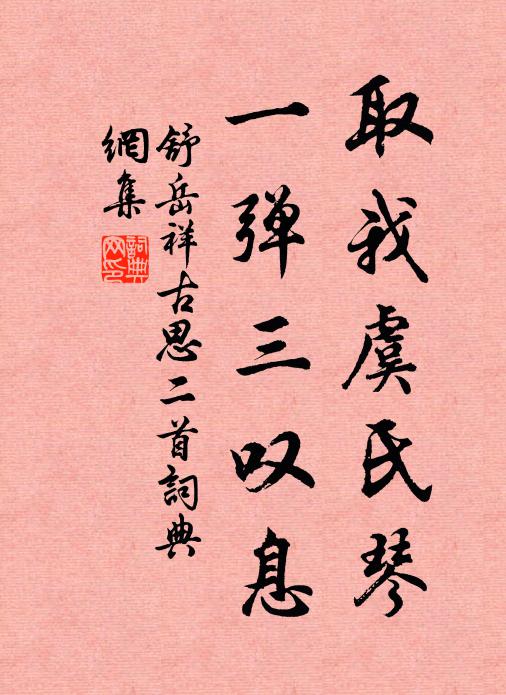 取我虞氏琴
一弹三叹息
舒岳祥古思二首詞典
網集
詞典网印